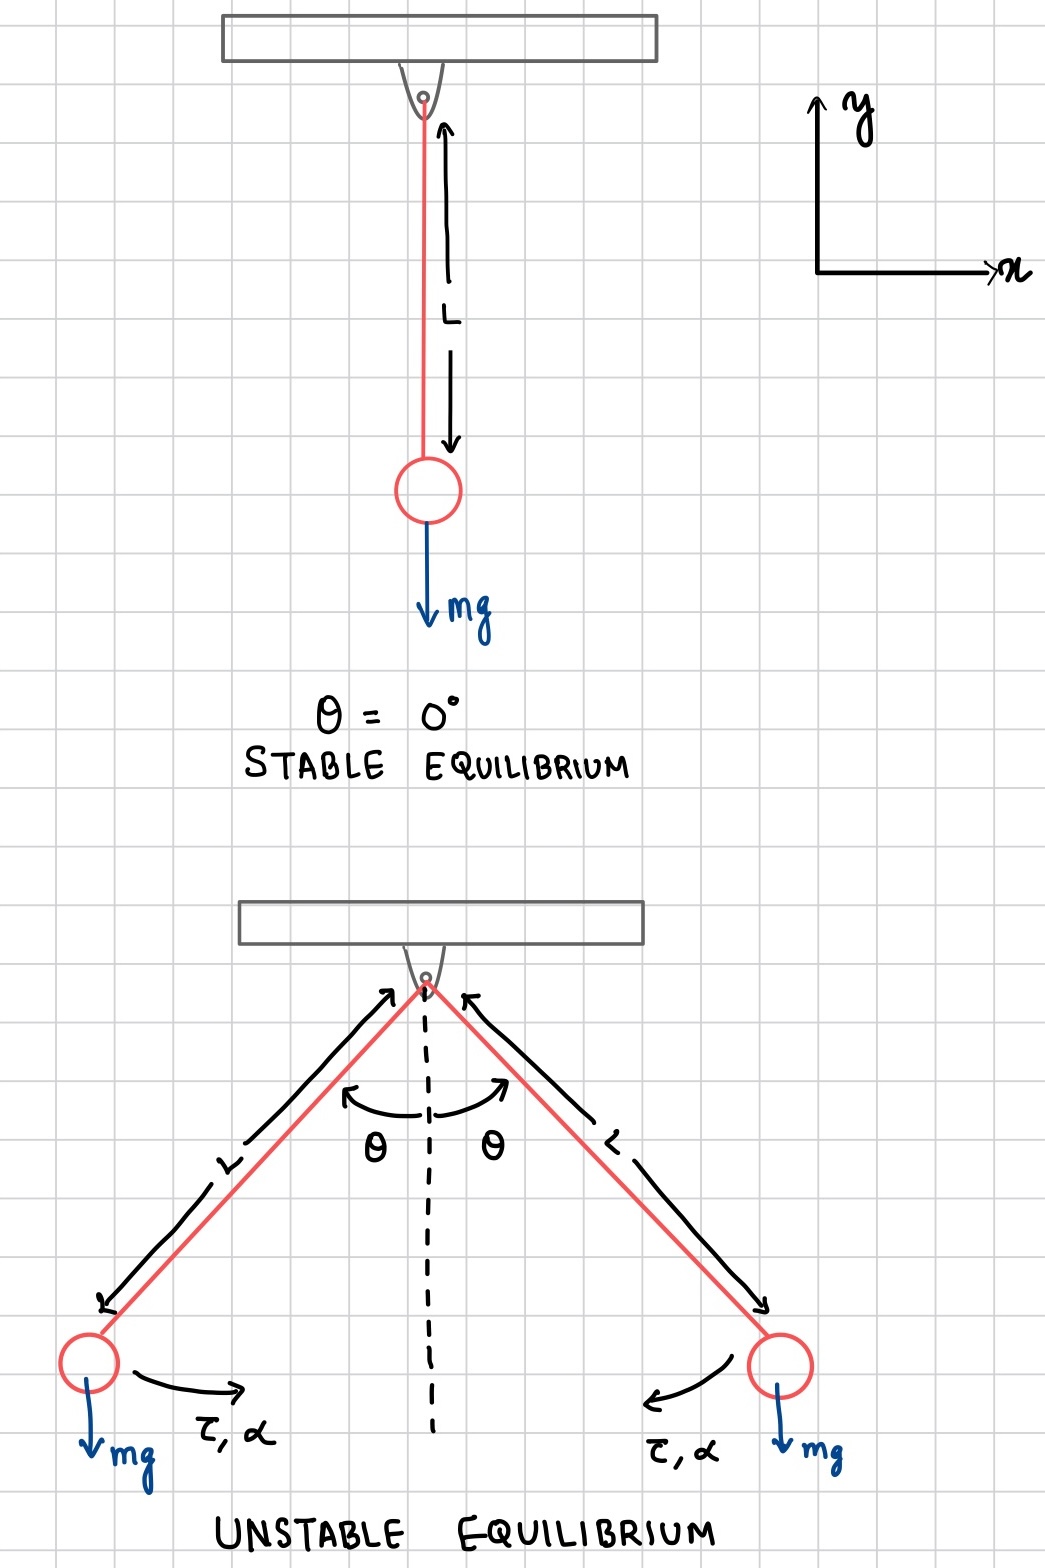 y
x
L
mg
θ = 0°
STABLE EQUILIBRIUM
θ θ
L L
τ, α τ, α
mg mg
UNSTABLE EQUILIBRIUM